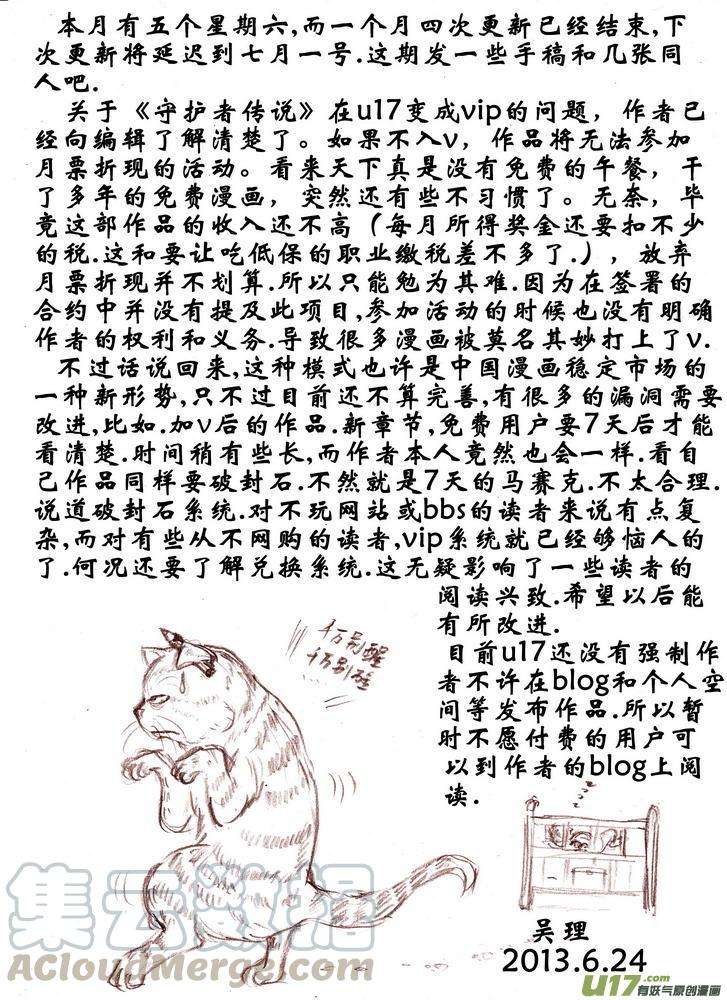 本月有五个星期六,而一个月四次更新已经结束,下
次更新将延迟到七月一号.这期发一些手稿和几张同
人吧.
关于《守护者传说》在u17变成vip的问题，作者已
经向编辑了解清楚了。如果不入v，作品将无法参加
月票折现的活动。看来天下真是没有免费的午餐，干
了多年的免费漫画，突然还有些不习惯了。无奈，毕
竟这部作品的收入还不高（每月所得奖金还要扣不少
的税.这和要让吃低保的职业缴税差不多了.），放弃
月票折现并不划算.所以只能勉为其难.因为在签署的
合约中并没有提及此项目,参加活动的时候也没有明确
作者的权利和义务.导致很多漫画被莫名其妙打上了v.
不过话说回来,这种模式也许是中国漫画稳定市场的
一种新形势,只不过目前还不算完善,有很多的漏洞需要
改进,比如.加v后的作品.新章节,免费用户要7天后才能
看清楚.时间稍有些长,而作者本人竟然也会一样.看自
己作品同样要破封石.不然就是7天的马赛克.不太合理.
说道破封石系统.对不玩网站或bbs的读者来说有点复
杂,而对有些从不网购的读者,vip系统就已经够恼人的
了.何况还要了解兑换系统.这无疑影响了一些读者的
阅读兴致.希望以后能
有所改进.
目前u17还没有强制作
者不许在blog和个人空
间等发布作品.所以暂
时不愿付费的用户可
以到作者的blog上阅
读.
千万别醒
千万别醒
z z z
吴理
2013.6.24
集云数据
ACloudMerge.com
U17.com
有妖气原创漫画